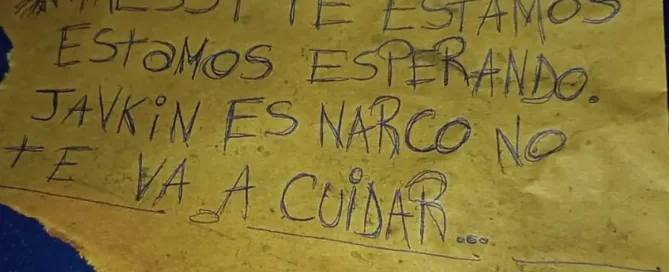 MESSI TE ESTAMOS
EStaMOS ESPERANDO.
JAVKiN ES NARCO NO
tE VA A CUiDAR...